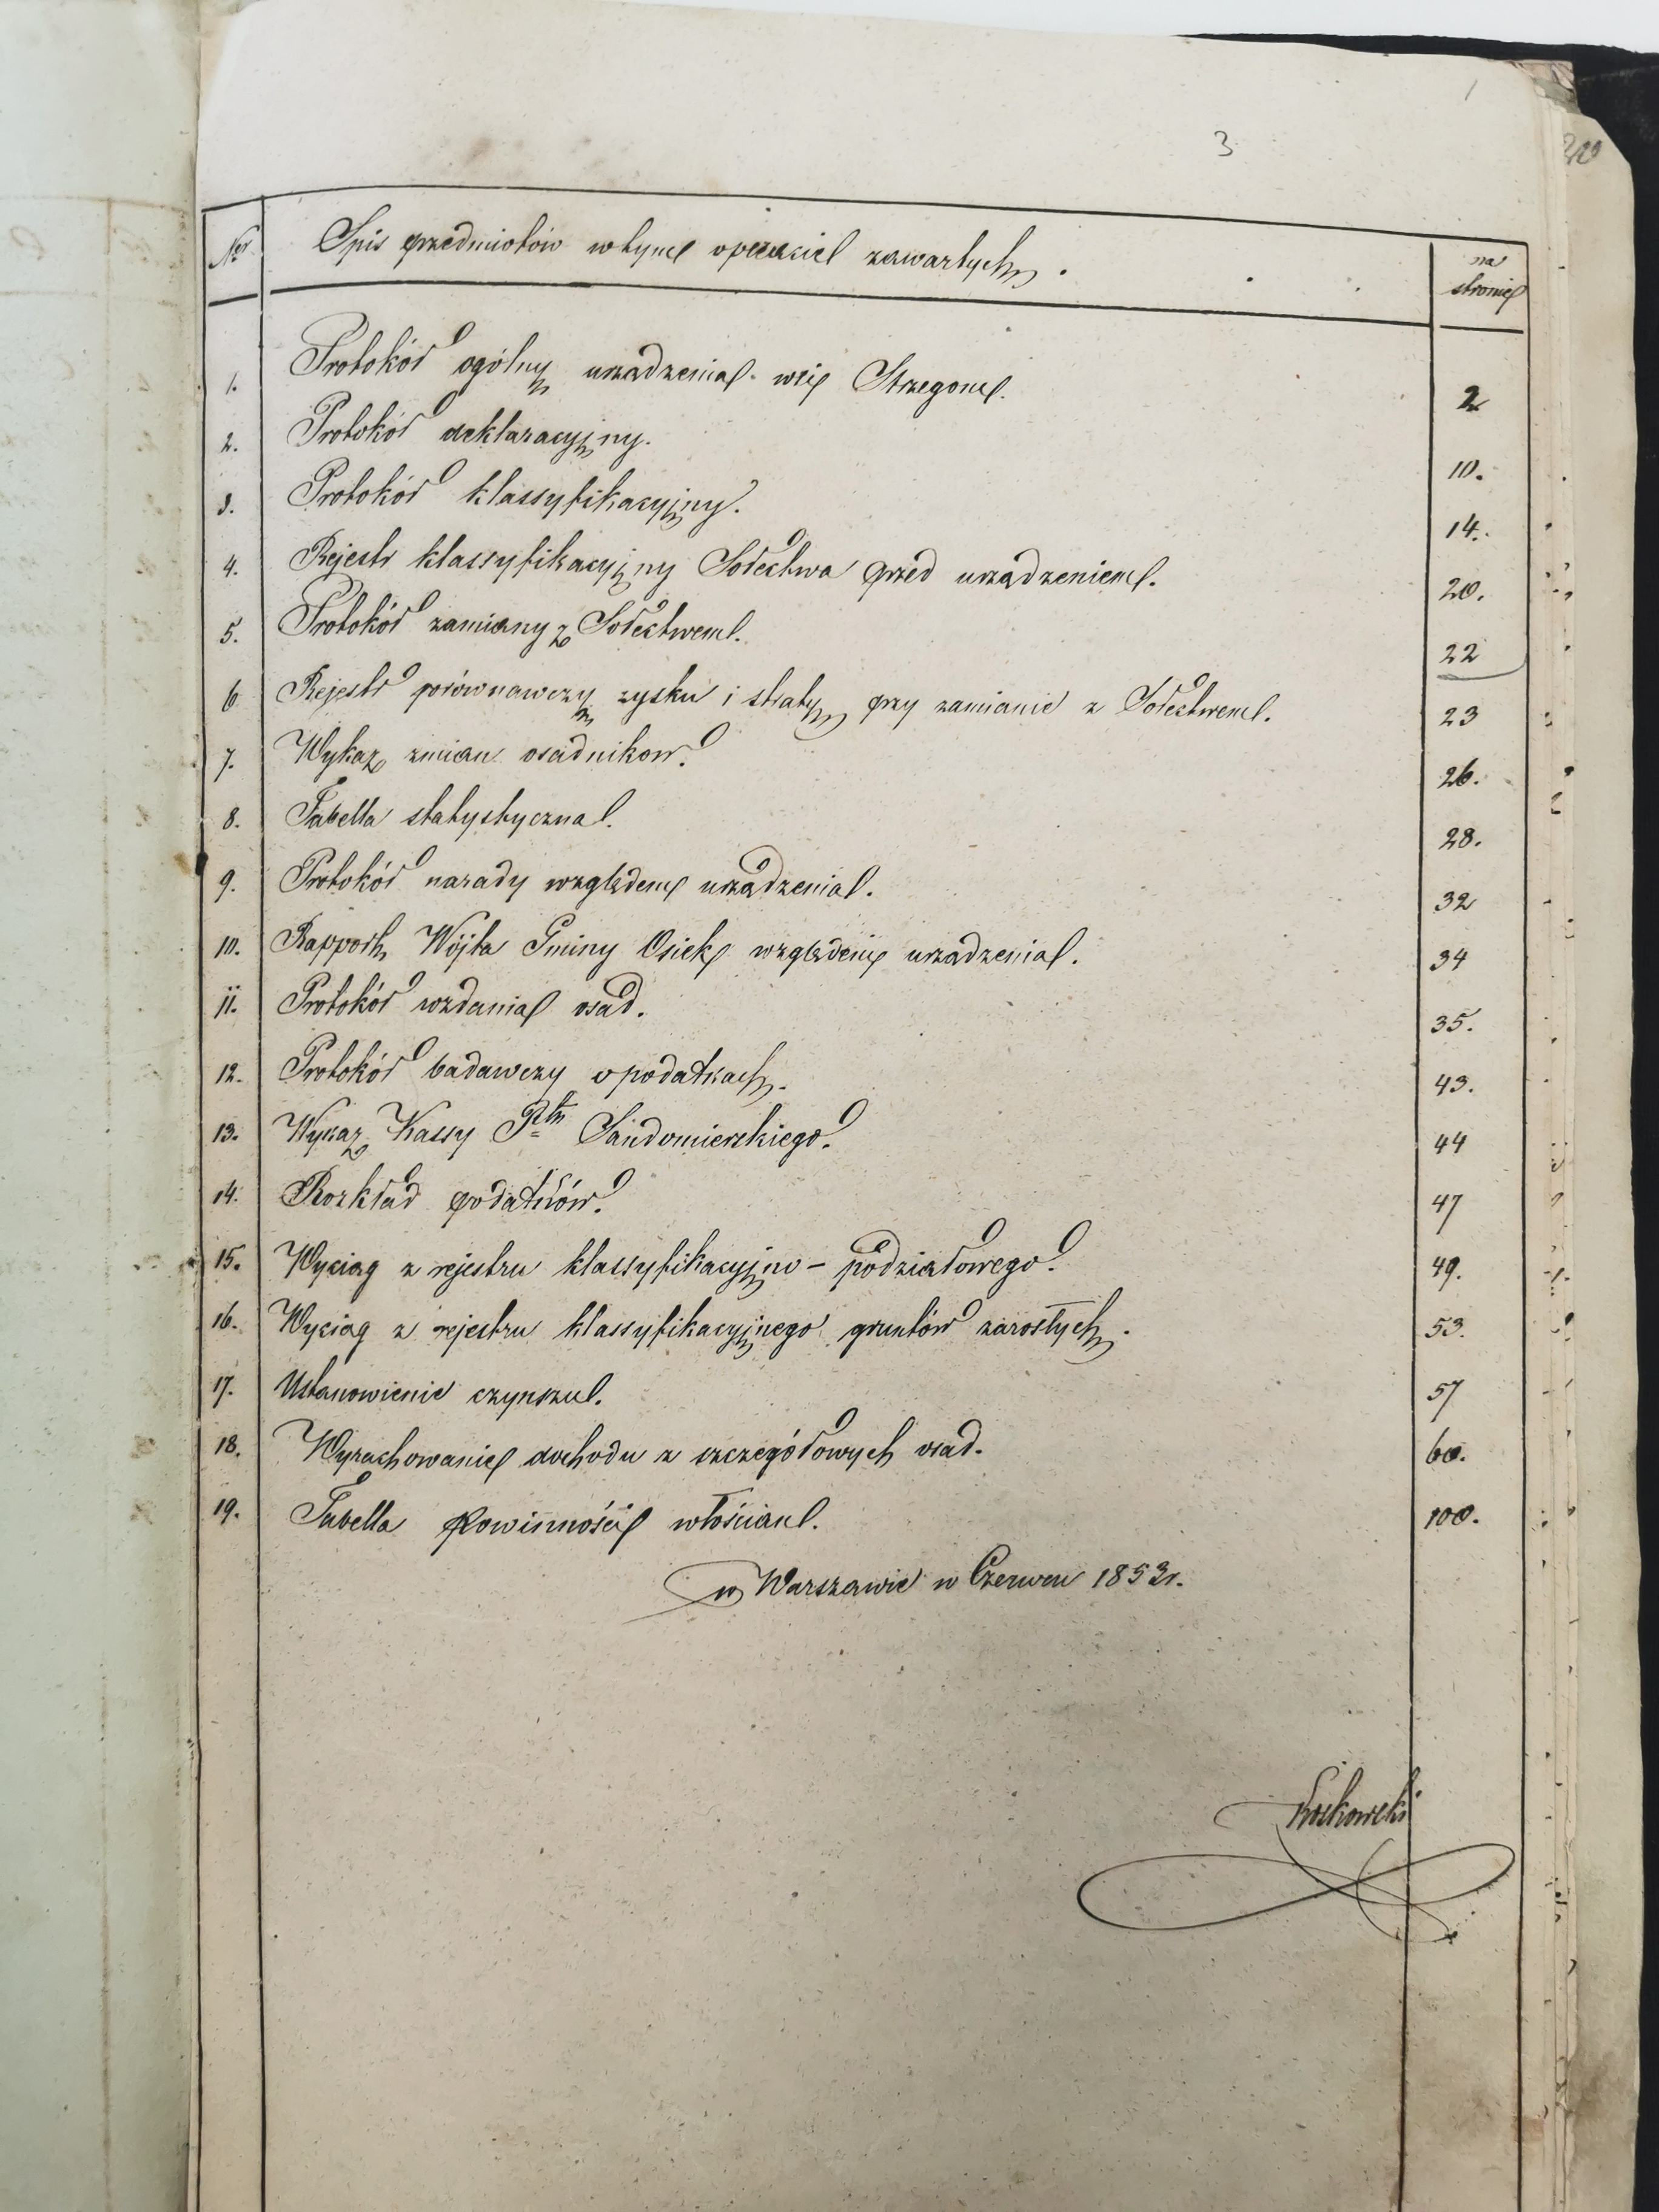 3
Nr Spis przedmiotów w tym operacie zawartych. na stronie
1. Protokół ogólny urządzenia wsi Strzegom. 2
2. Protokół deklaracyjny. 10.
3. Protokół klassyfikacyjny. 14.
4. Rejestr klassyfikacyjny Sołectwa przed urządzeniem. 20.
5. Protokół zamiany z Sołectwem. 22
6 Rejestr porównawczy zysku i straty przy zamianie z Sołectwem. 23
7. Wykaz zmian osadników. 26.
8. Tabella statystyczna. 28.
9. Protokół narady względem urządzenia. 32
10. Rapport Wójta Gminy Osiek względem urządzenia. 34
11. Protokół wzdania osad. 35.
12. Protokół badawczy o podatkach. 43.
13. Wykaz Kassy Ptu Sandomierskiego. 44
14. Rozkład podatków. 47
15. Wyciąg z rejestru klassyfikacyjno - podziałowego. 49.
16. Wyciąg z rejestru klassyfikacyjnego gruntów zarosłych. 53.
17. Ustanowienie czynszu. 57
18. Wyrachowanie dochodu z szczegółowych osad. 60.
19. Tabella Powinności włościan. 100.
w Warszawie w Czerwcu 1853r.